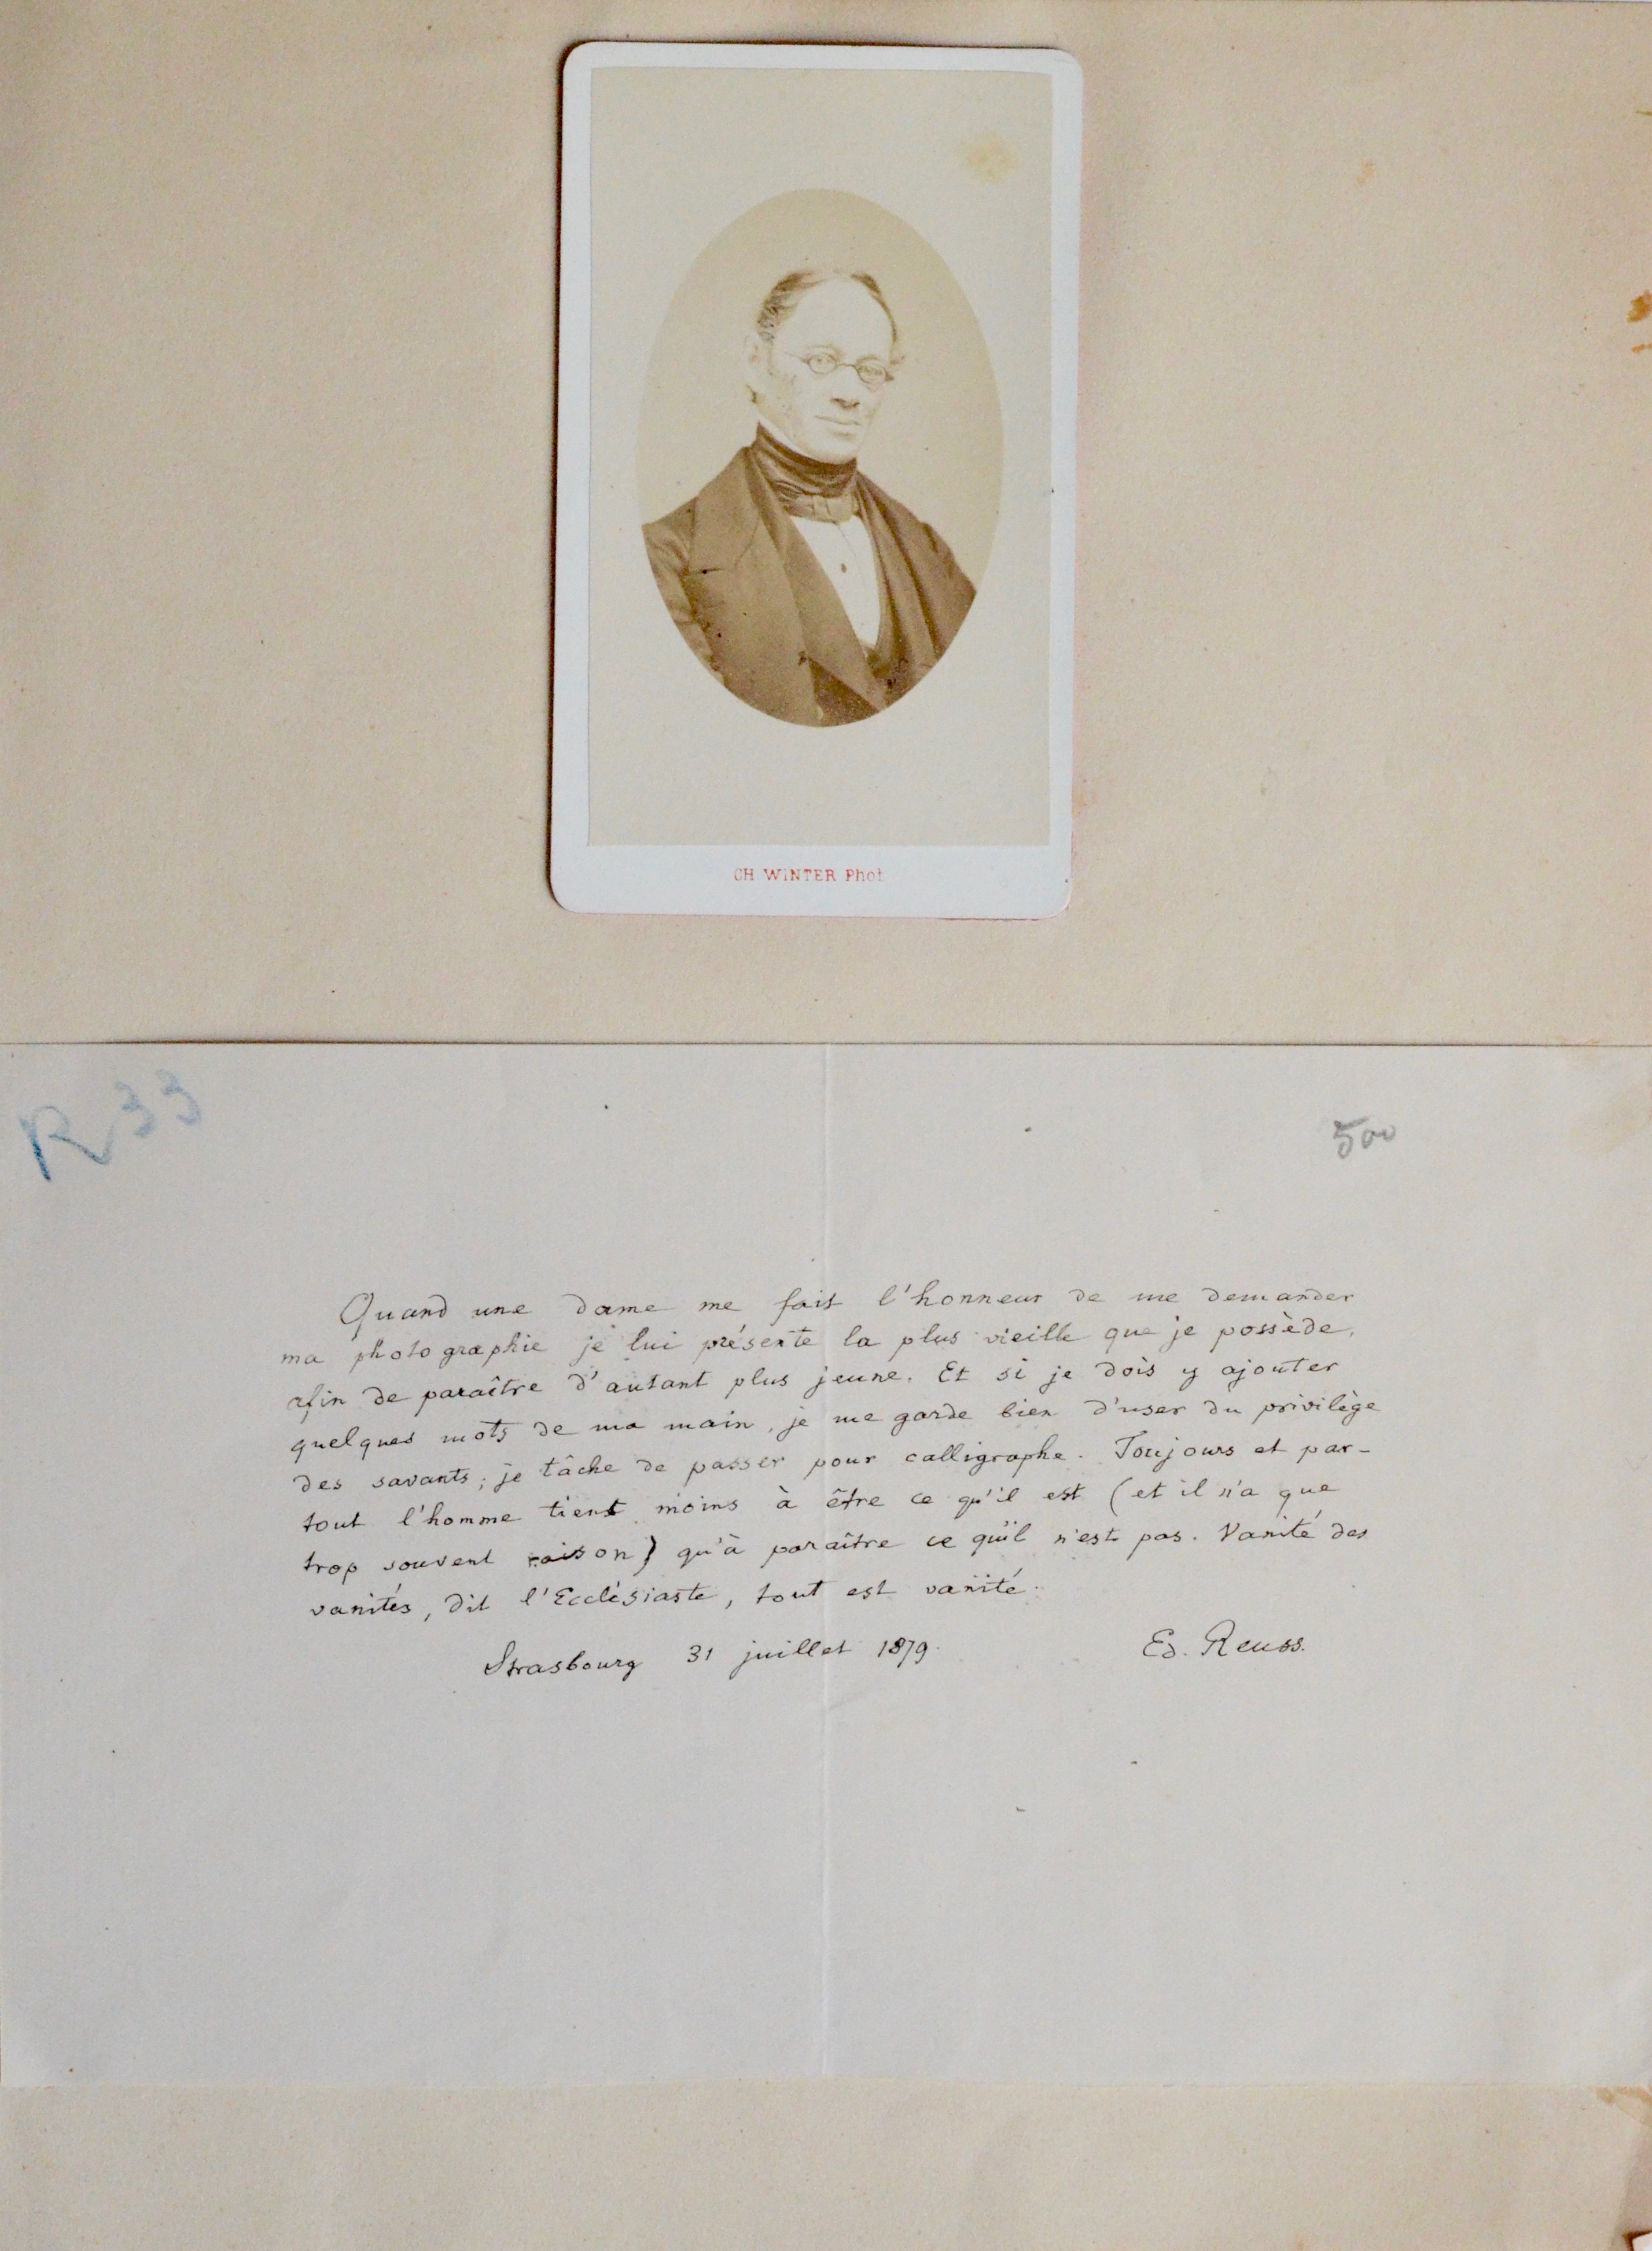 CH WINTER Phot
R 33
500
Quand une dame me fait l'honneur de me demander
ma photographie je lui présente la plus vieille que je possède,
afin de paraître d'autant plus jeune. Et si je dois y ajouter
quelques mots de ma main, je me garde bien d'user du privilège
des savants; je tâche de passer pour calligraphe. Toujours et par-
tout l'homme tient moins à être ce qu'il est (et il n'a que
trop souvent raison) qu'à paraître ce qu'il n'est pas. Vanité des
vanités, dit l'Ecclésiaste, tout est vanité.
Strasbourg 31 juillet 1879.
Ed. Reuss.